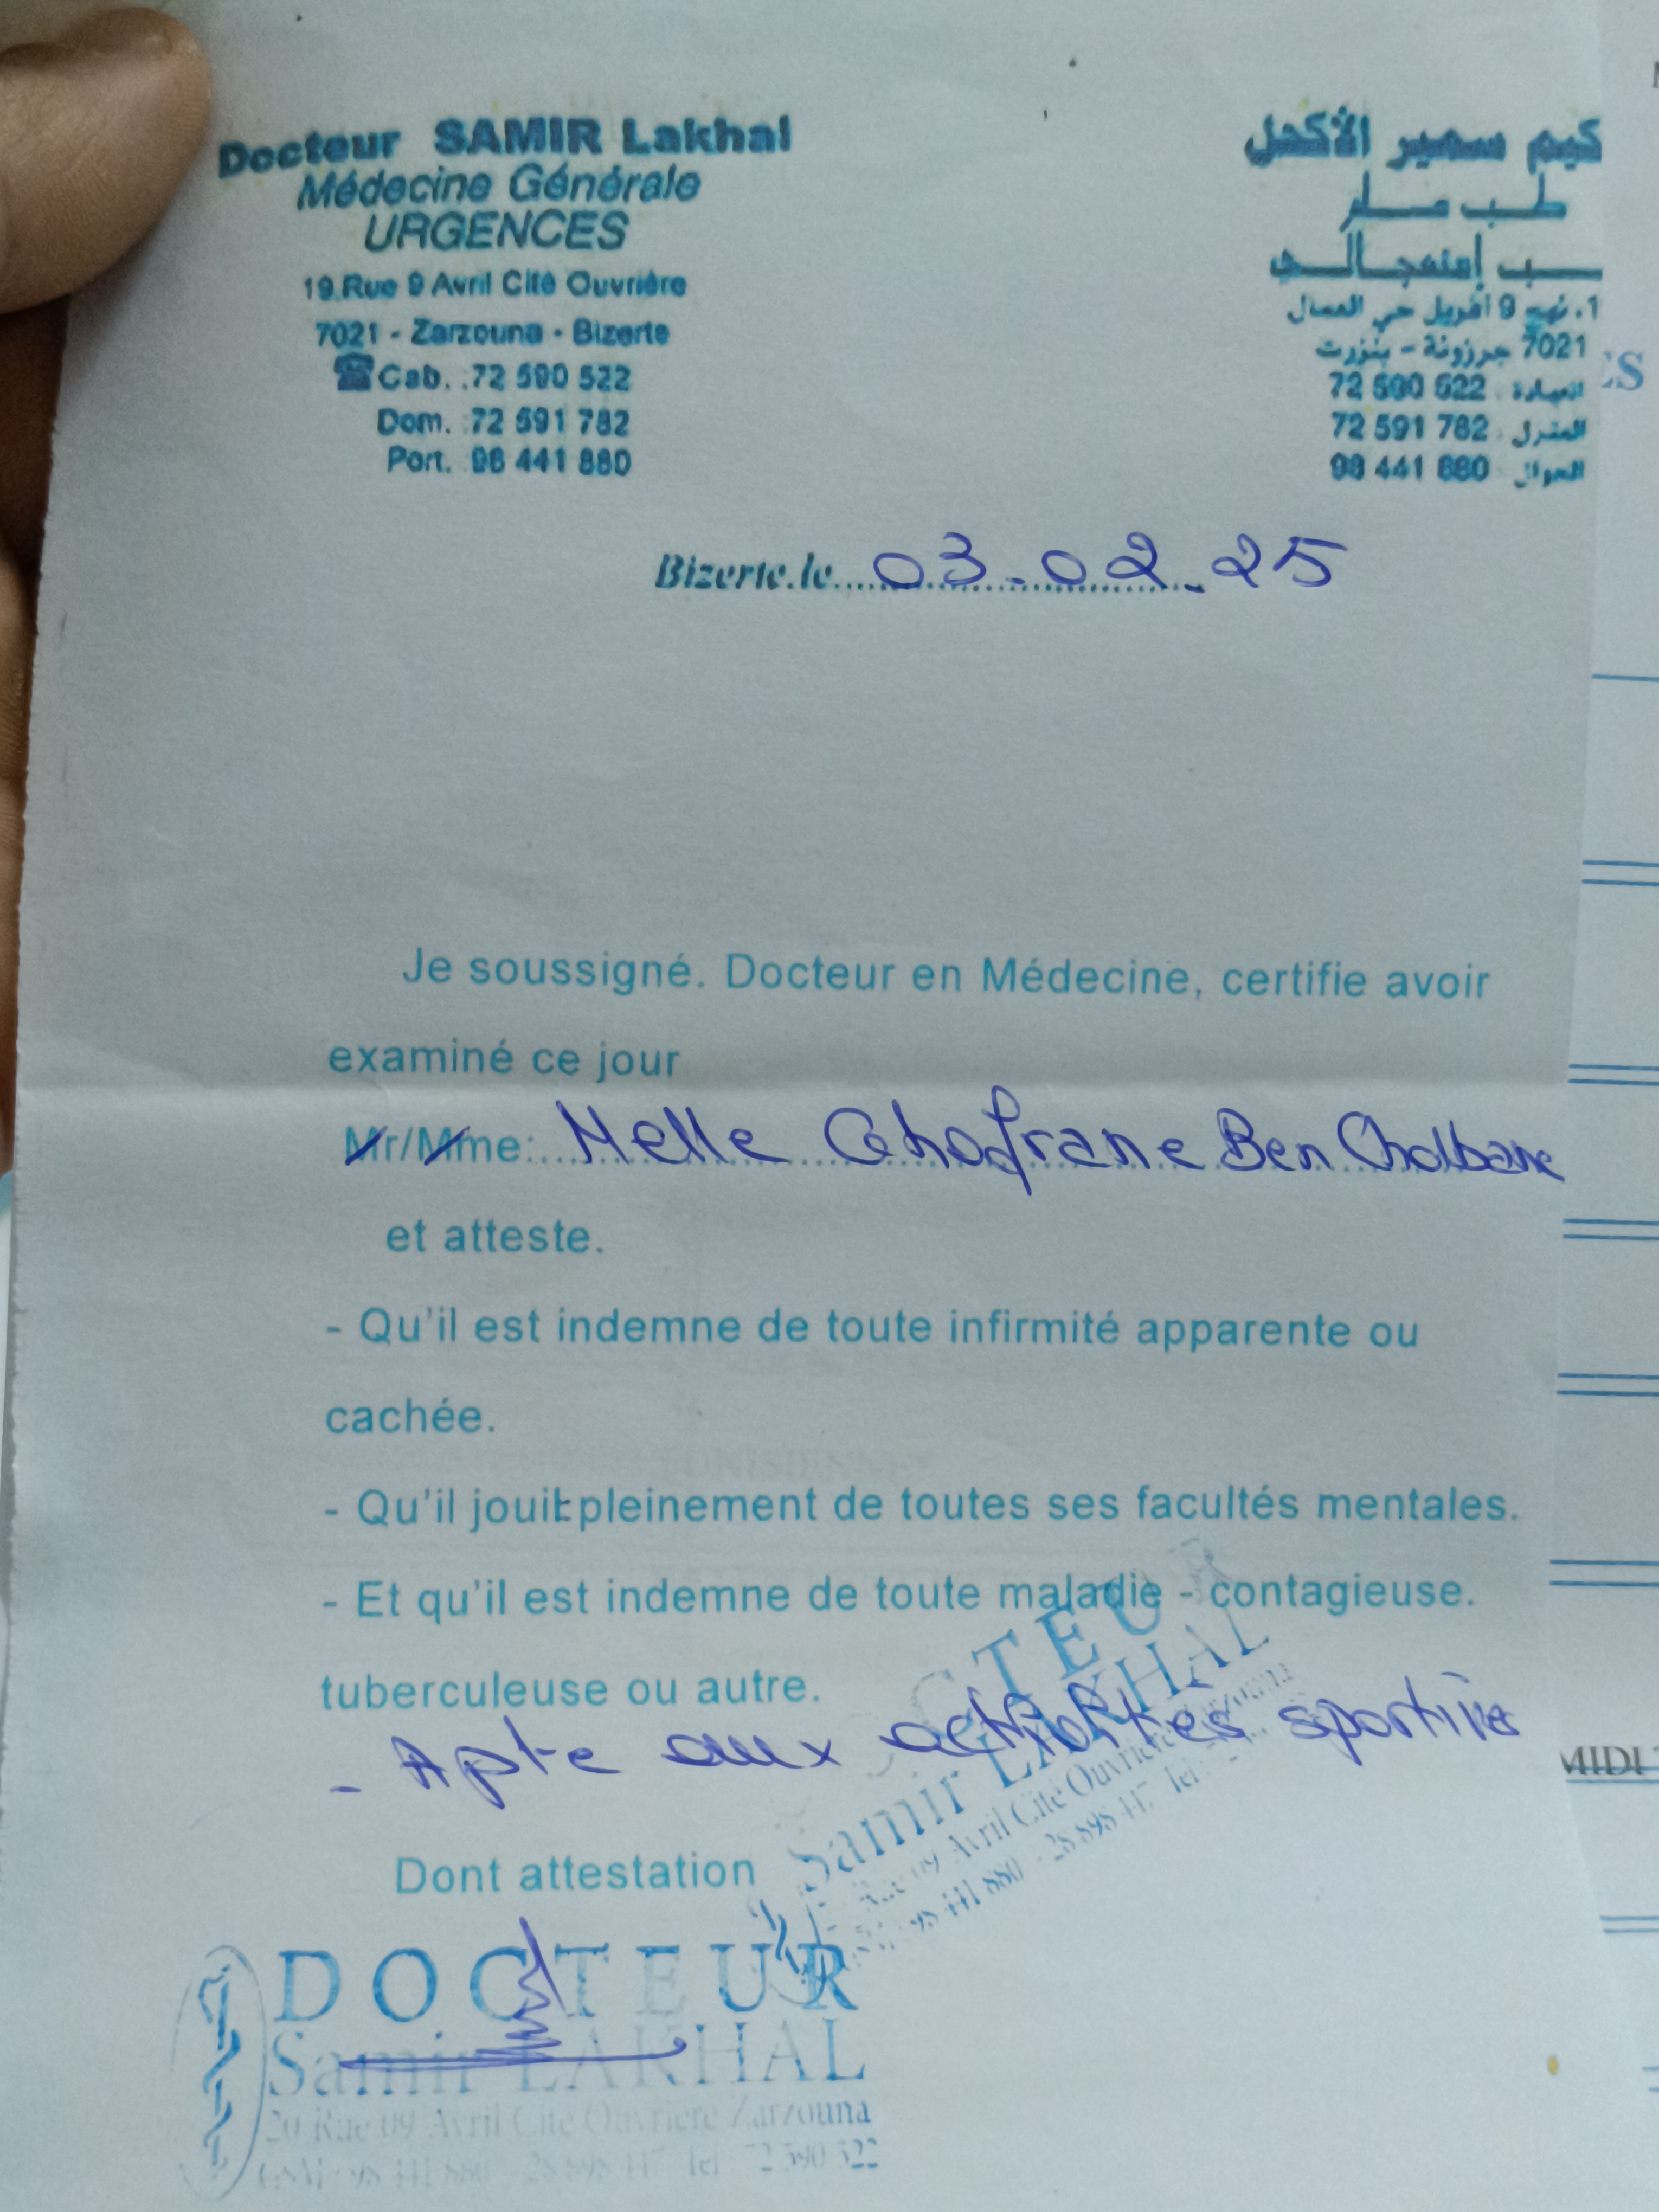 Docteur SAMIR Lakhal
Médecine Générale
URGENCES
19.Rue 9 Avril Cité Ouvrière
7021 - Zarzouna - Bizerte
☎ Cab. : 72 590 522
Dom. : 72 591 782
Port. : 98 441 880
كيم سمير الأكحل
طب عام
ـب إستعجالي
1. نهج 9 أفريل حي العمال
7021 جرزونة - بنزرت
العيادة : 72 590 522
المنزل : 72 591 782
الجوال : 98 441 880
ES
Bizerte.le 03-02-25
Je soussigné. Docteur en Médecine, certifie avoir
examiné ce jour
Mr/Mme: Melle Ghofrane Ben
et atteste.
- Qu'il est indemne de toute infirmité apparente ou
cachée.
- Qu'il jouit pleinement de toutes ses facultés mentales.
- Et qu'il est indemne de toute maladie - contagieuse.
tuberculeuse ou autre.
- Apte aux activités sportives
MIDI
Dont attestation
DOCTEUR
Samir LAKHAL
Rue 09 Avril Cité Ouvrière Zarzouna
98 441 880 - 28 898 Tel :
DOCTEUR
Samir LAKHAL
20 Rue 09 Avril Cité Ouvrière Zarzouna
GSM : 98 441 880 - 28 898 Tel : 72 590 522